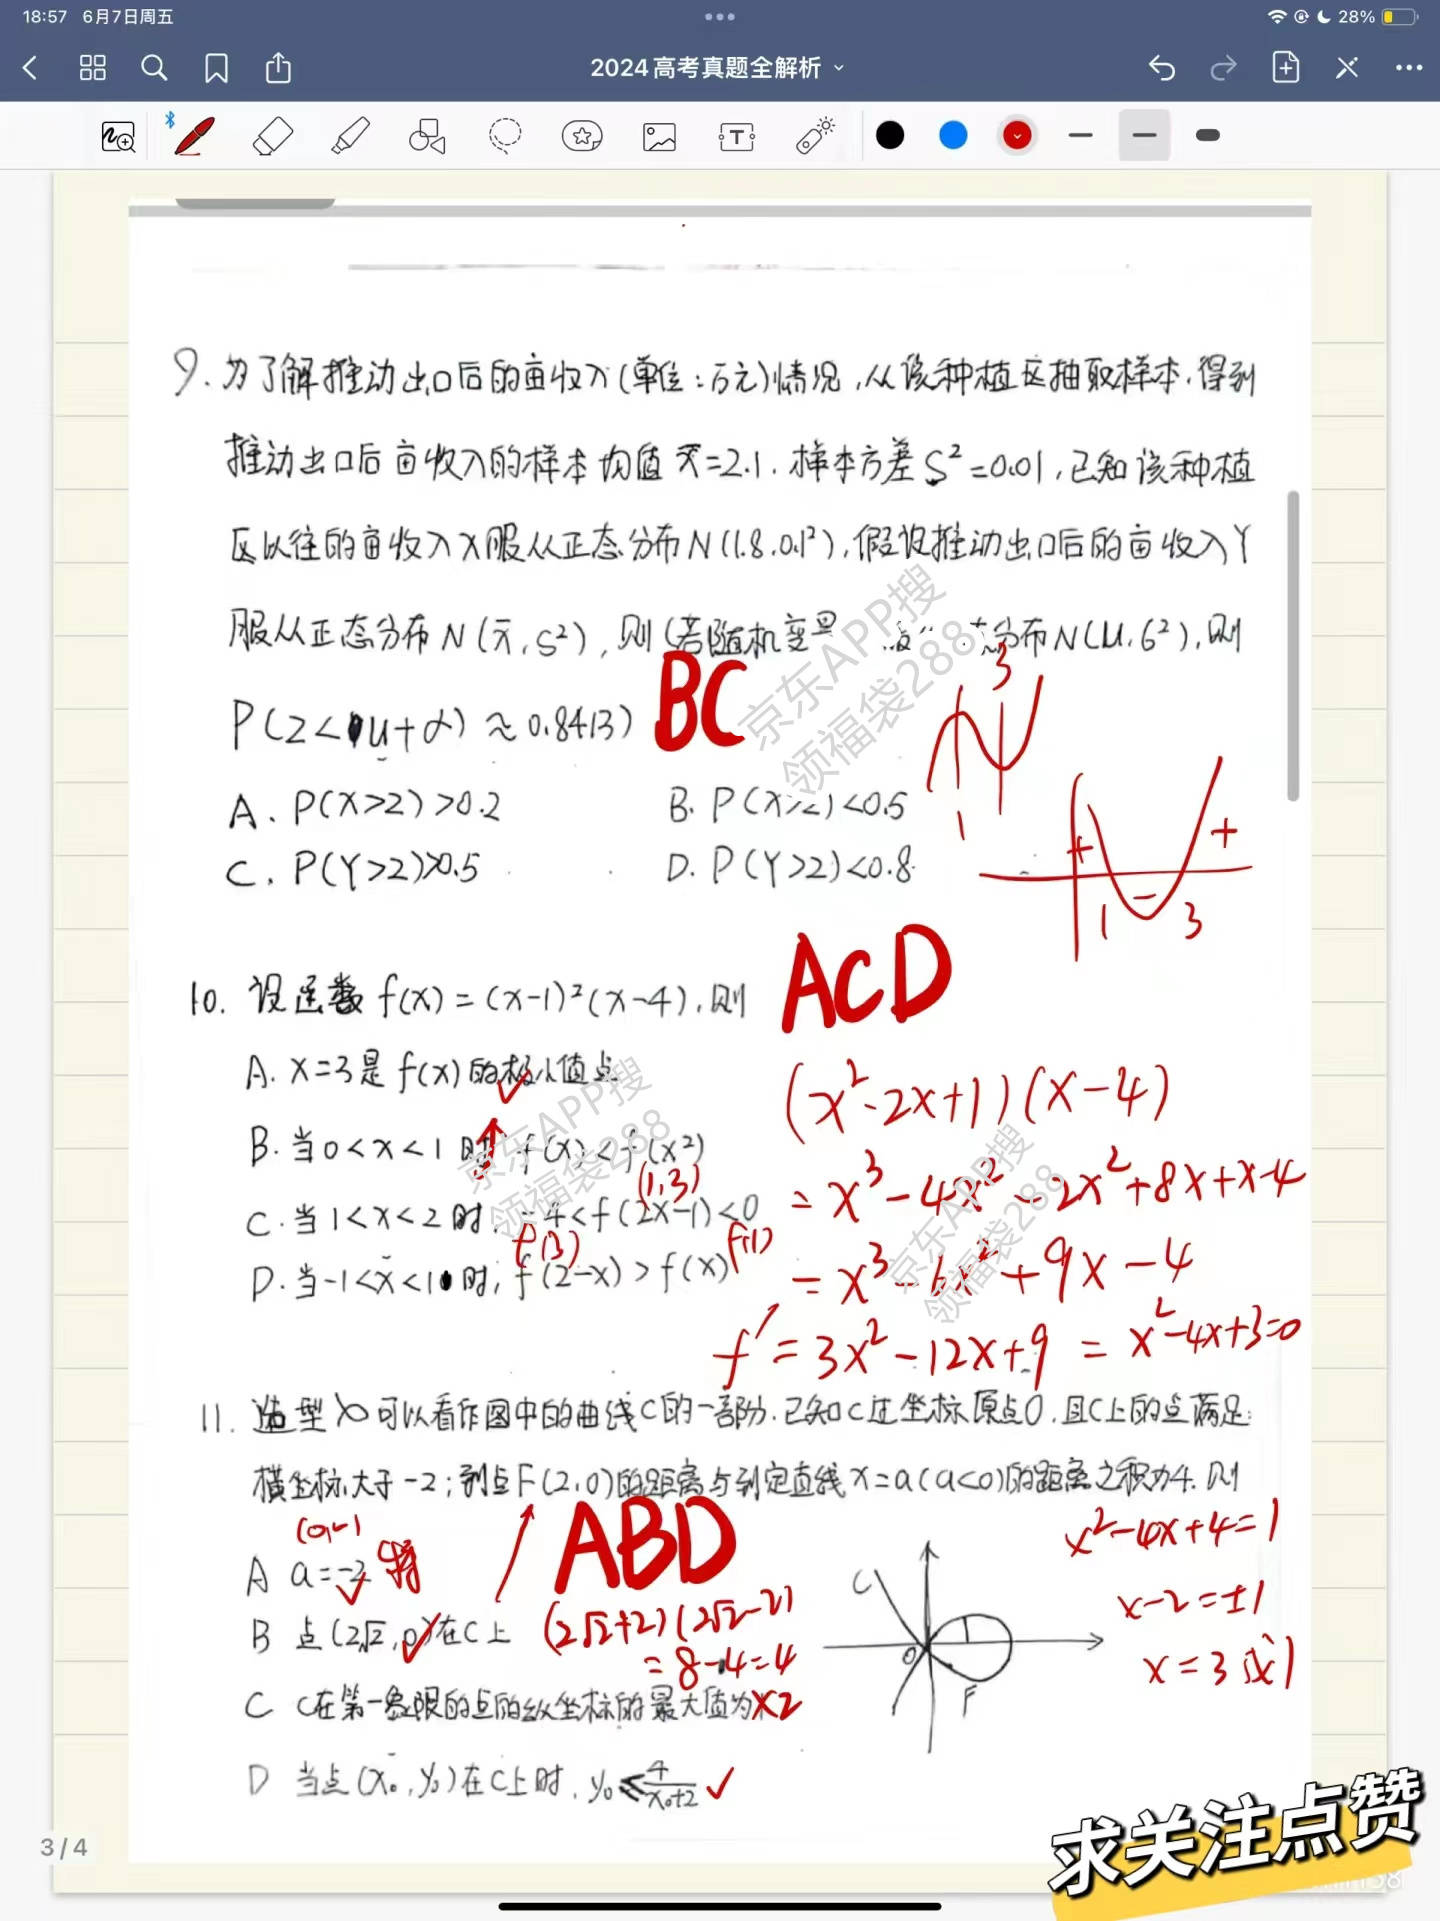 18:57 6月7日周五
28%
2024高考真题全解析
9. 为了解推动出口后的亩收入(单位:万元)情况,从该种植区抽取样本,得到
推动出口后亩收入的样本均值x̄=2.1,样本方差S²=0.01,已知该种植
区以往的亩收入X服从正态分布N(1.8,0.1²),假设推动出口后的亩收入Y
服从正态分布N(x̄,S²),则(若随机变量 分布N(u,6²),则
P(Z<u+α)≈0.8413)
BC
3
1
A. P(X>2)>0.2 B. P(X>2)<0.5
C. P(Y>2)>0.5 D. P(Y>2)<0.8
+ - +
1 3
10. 设函数 f(x)=(x-1)²(x-4),则
ACD
A. x=3是f(x)的极小值点
(x²-2x+1)(x-4)
B. 当0<x<1时 f(x)<f(x²)
(1,3)
=x³-4x²-2x²+8x+x-4
C. 当1<x<2时,-4<f(2x-1)<0
f(3) f(1)
=x³-6x²+9x-4
D. 当-1<x<1时,f(2-x)>f(x)
f'=3x²-12x+9=x²-4x+3=0
11. 造型 可以看作图中的曲线C的一部分.已知C过坐标原点O,且C上的点满足:
横坐标大于-2;到点F(2,0)的距离与到定直线x=a(a<0)的距离之积为4.则
ABD
x²-4x+4=1
A a=-2
x-2=±1
B 点(2√2,0)在C上
(2√2+2)(2√2-2)
=8-4=4
x=3或1
C O F
C C在第一象限的点的纵坐标的最大值为
×2
D 当点(x₀,y₀)在C上时,y₀≤4/(x₀+2) ✓
京东APP搜
领福袋288
京东APP搜
领福袋288
京东APP搜
领福袋288
3/4
求关注点赞